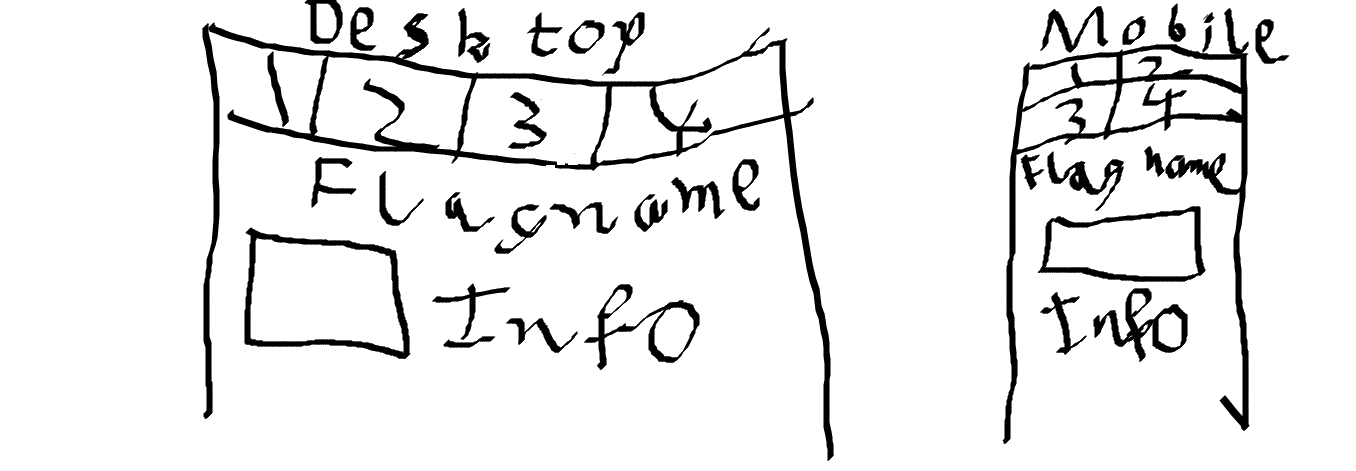 Desktop
1 2 3 4
Flagname
Info
Mobile
1 2
3 4
Flag name
Info